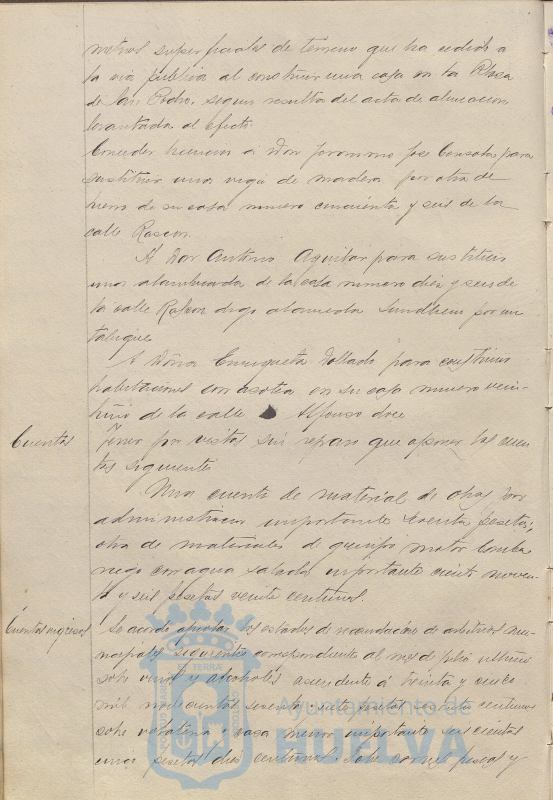 metros superficiales de terreno que ha cedido a
la via publica al construir una casa en la Plaza
de San Pedro, segun resulta del acta de alineacion
levantada al efecto.
Conceder licencia á Don Jeronimo José para
sustituir una viga de madera por otra de
hierro de su casa numero cincuenta y seis de la
calle Rascon.
A Don Antonio Aguilar para sustituir
una alambrada de la casa numero diez y seis de
la calle Rascon digo alameda Sundheim por un
tabique
A Doña Enriqueta para construir
habitaciones con azotea en su casa numero vein-
tiuno de la calle Alfonso doce
Cuentas
Fueron por vistas sin reparo que oponer las cuen-
tas siguientes
Una cuenta de material de obras por
administracion importante setenta pesetas;
otra de materiales de equipo motor bomba
riego con agua salada importante ciento noven-
ta y seis pesetas veinte centimos.
Cuentas ingresos
Se acordó aprobar los estados de recaudacion de arbitrios mu-
nicipales siguientes correspondiente al mes de Julio ultimo
sobre vinos y alcoholes ascendente á treinta y cinco
mil pesetas centimos
sobre volateria y caza menor importante seiscientas
una pesetas dos centimos. Sobre carnes frescas y
Ayuntamiento de
HUELVA
PORTUS MARIS
ET TERRÆ
CUSTODIA